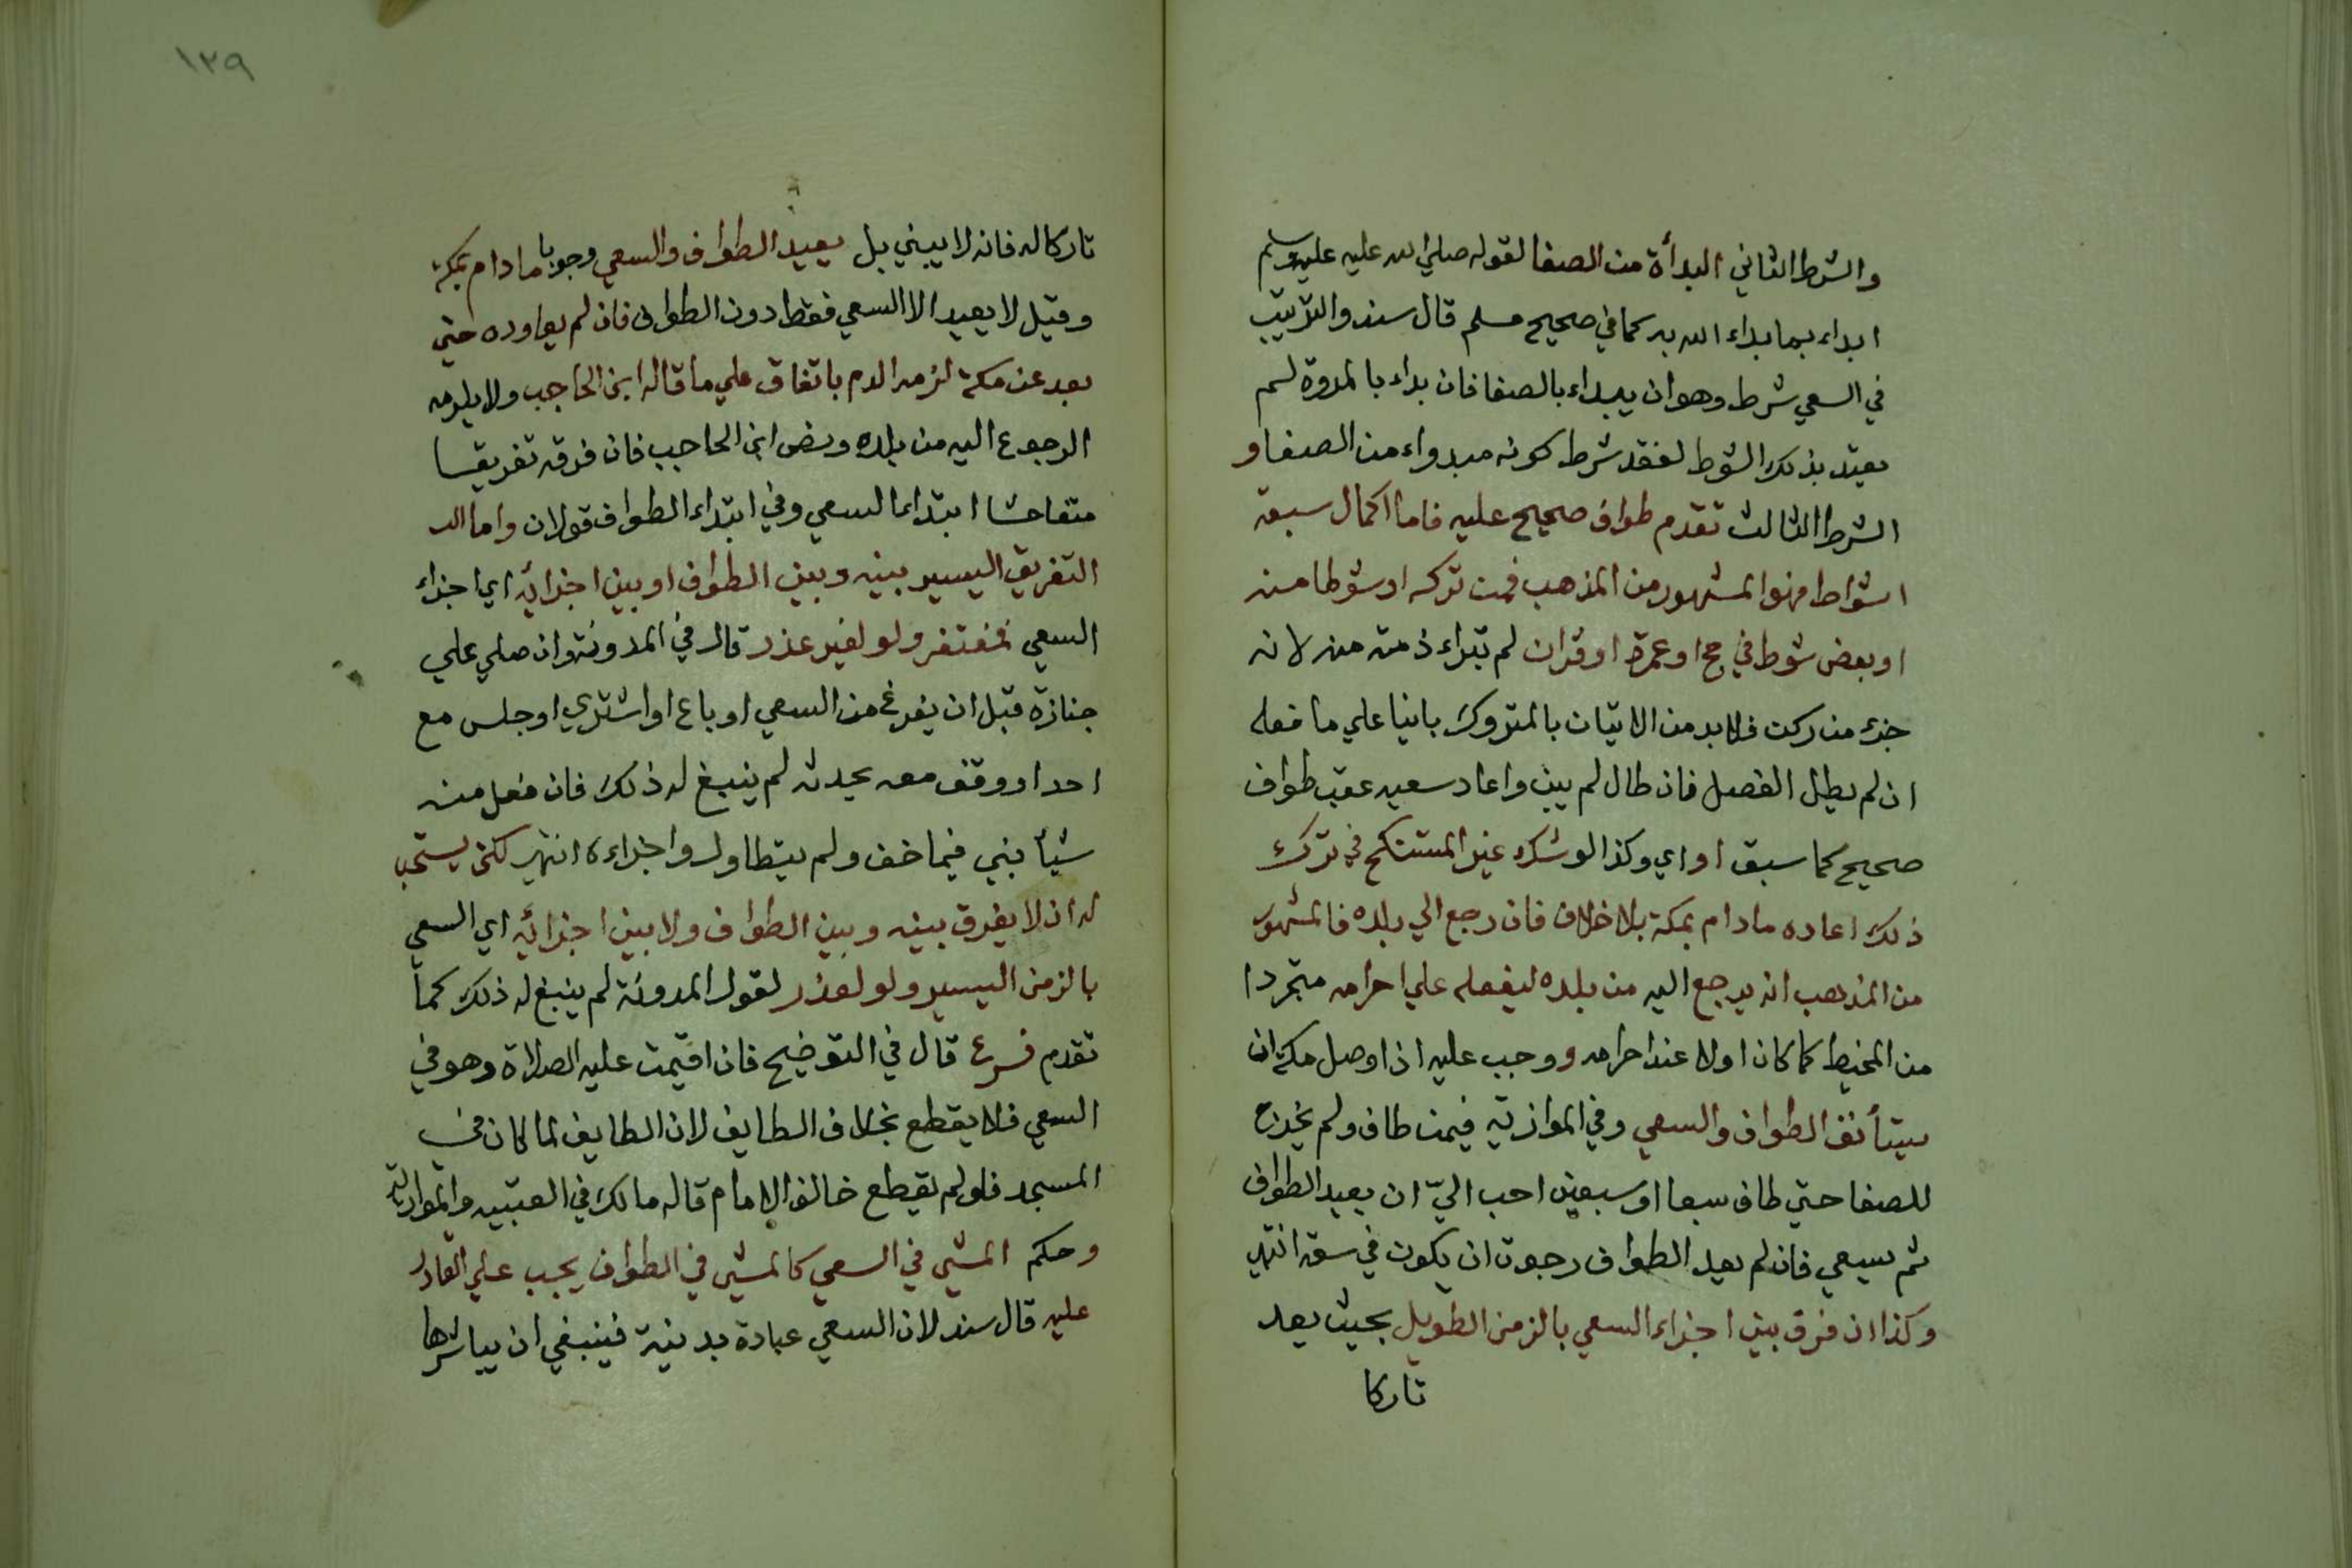 والشرط الثاني البدأة من الصفا لقوله صلي الله عليه عليه وسلم
ابداء بما بداء الله به كما في صحيح مسلم قال سند والترتيب
في السعي شرط وهو ان يبداء بالصفا فان بداء بالمروة لم
يعتد بذلك الشوط لفقد شرط كونه مبدواء من الصفا و
الشرط الثالث تقدم طواف صحيح عليه فاما اكمال سبعة
اشواط فهو المشهور من المذهب فمن تركه او شوطا منه
او بعض شوط في حج او عمرة او قران لم تبراء ذمته منه لانه
جزء من ركن فلا بد من الاتيان بالمتروك بانيا علي ما فعله
ان لم يطل الفصل فان طال لم يبن واعاد سعيه عقب طواف
صحيح كما سبق او اي وكذا لو شك غير المستنكح في ترك
ذلك اعاده مادام بمكة بلا خلاف فان رجع الي بلده فالمشهور
من المذهب انه يرجع اليه من بلده ليفعله علي احرامه متجردا
من المخيط كما كان اولا عند احرامه ووجب عليه اذا وصل مكة ان
يستأنف الطواف والسعي وفي الموازية فيمن طاف ولم يخرج
للصفا حتي طاف سبعا او سبعين احب الىّ ان يعيد الطواف
ثم يسعي فان لم يعد الطواف رجوت ان يكون في سعة انتهي
وكذا ان فرق بين اجزاء السعي بالزمن الطويل بحيث يعد
تاركا
١٣٩
تاركا له فانه لا يبني بل يعيد الطواف والسعي وجوبا مادام بمكة
وقيل لا يعيد الا السعي فقط دون الطواف فان لم يعاوده حتي
بعد عن مكة لزمه الدم باتفاق علي ما قاله ابن الحاجب ولا يلزمه
الرجوع اليه من بلده ونص ابن الحاجب فان فرقه تفريقا
متفاحشا ابتداء السعي وفي ابتداء الطواف قولان واما الـ
التفريق اليسير بينه وبين الطواف او بين اجزائه اي اجزاء
السعي فمغتفر ولو لغير عذر قال في المدونة وان صلي علي
جنازة قبل ان يفرغ من السعي او باع او اشتري او جلس مع
احد او وقف معه يحدثه لم ينبغ له ذلك فان فعل منه
شيأ بني فيما خف ولم يتطاول واجزاءه انتهي لكن يستحب
له ان لا يفرق بينه وبين الطواف ولا بين اجزائه اي السعي
بالزمن اليسير ولو لعذر لقول المدونة لم ينبغ له ذلك كما
تقدم فرع قال في التوضيح فان اقيمت عليه الصلاة وهو في
السعي فلا يقطع بخلاف الطايف لان الطايف لما كان في
المسجد فلو لم يقطع خالف الامام قاله مالك في العتبيه والموازية
وحكم المشي في السعي كالمشي في الطواف يجب علي القادر
عليه قال سند لان السعي عبادة بدنية فينبغي ان يباشرها